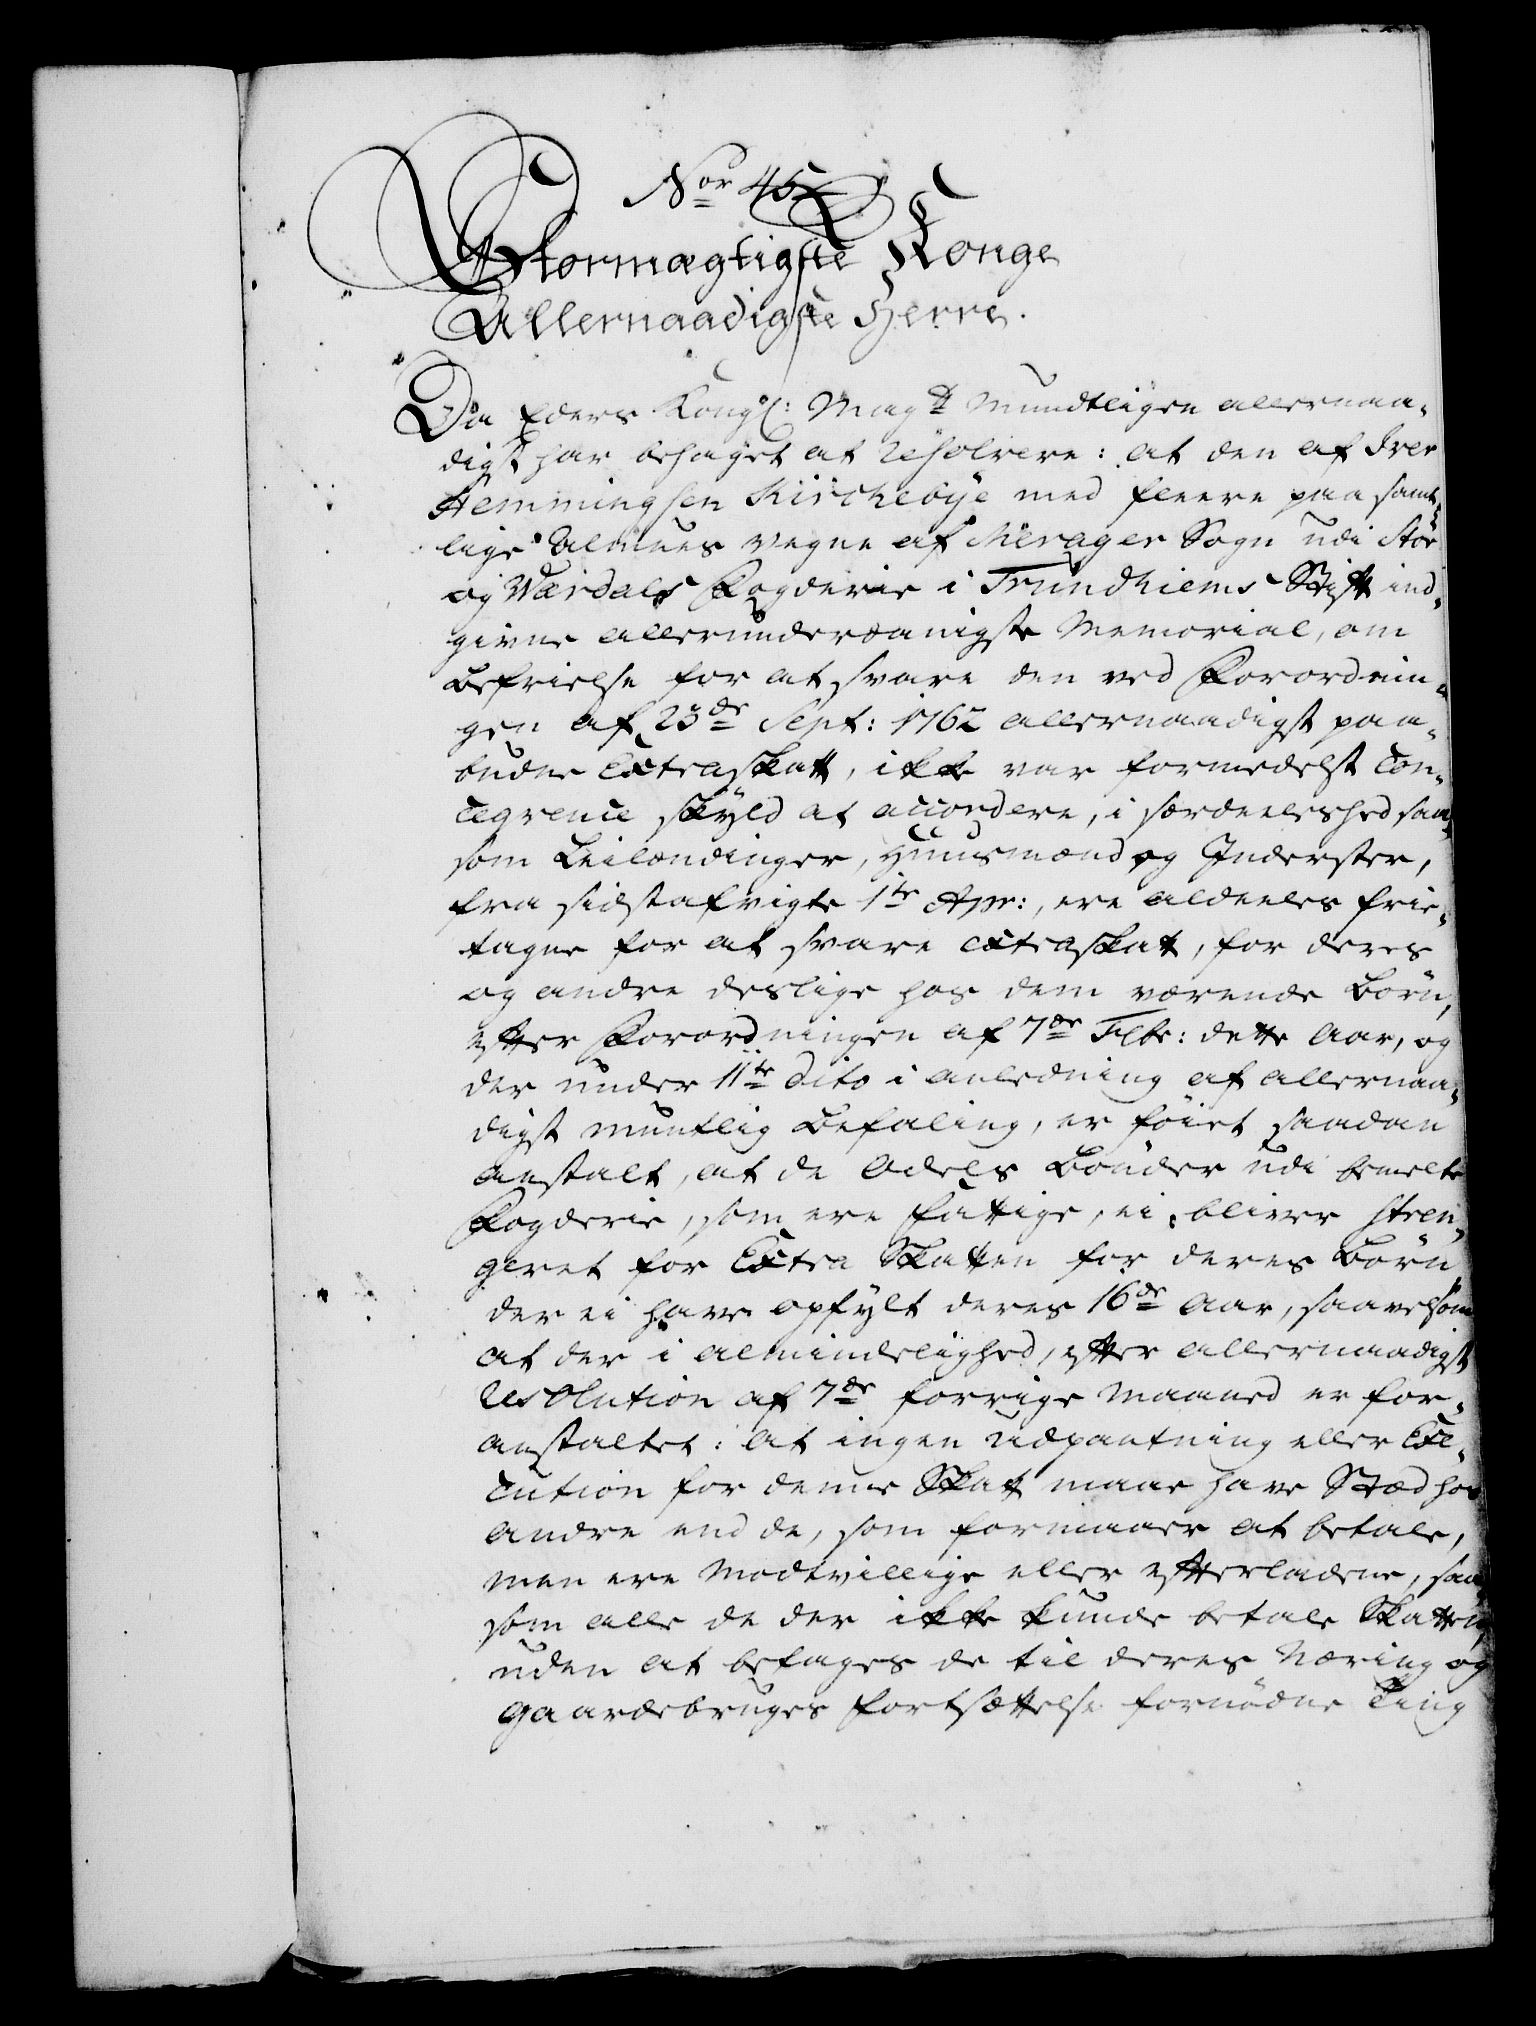 Nor 45
Stormægtigste Konge
Allernaadigste Herre.
Da Eders Kongl: Mayt Mundtligen allernaa-
digst har behaget at resolvere: at den af Iver
Hemmingsen Kirchebye med fleere paa samt-
lige Almues vegne af Merager Sogn udi Stör
og Værdals Fogderie i Trundhiems Stift ind-
givne allerunderdanigste Memorial, om
Befrielse for at svare den ved Forordnin-
gen af 23de Sept: 1762 allernaadigst paa-
budne Extraskatt, ikke var formedelst Con-
seqvence skyld at accordere, i særdeeleshed saa-
som Leilændinger, Huusmænd og Inderster,
fra sidstafvigte 1te Apr:, ere aldeeles frie-
tagne for at svare Extraskatt, for deres
og andre deslige hos dem værende Börn,
efter Forordningen af 7de Febr: dette Aar, og
der under 11te dito i anledning af allernaa-
digst muntlig Befaling, er föiet saadan
anstalt, at de Odels Bönder udi bemelte
Fogderie, som ere fattige, ei bliver stren-
geret for Extra Skatten for deres Börn
der ei have opfylt deres 16de Aar, saavelsom
at der i almindelighed, efter allernaadigst
Resolution af 7de forrige Maaned er for-
anstaltet: at ingen Udpantning eller Exe-
cution for denne Skatt maae have Stæd hos
andre end de, som formaaer at betale,
men ere Modvillige eller efterladene, saa-
som alle de der ikke kunde betale Skatten,
uden at betages de til deres Næring og
Gaardebruges fortsættelse fornödne Ting